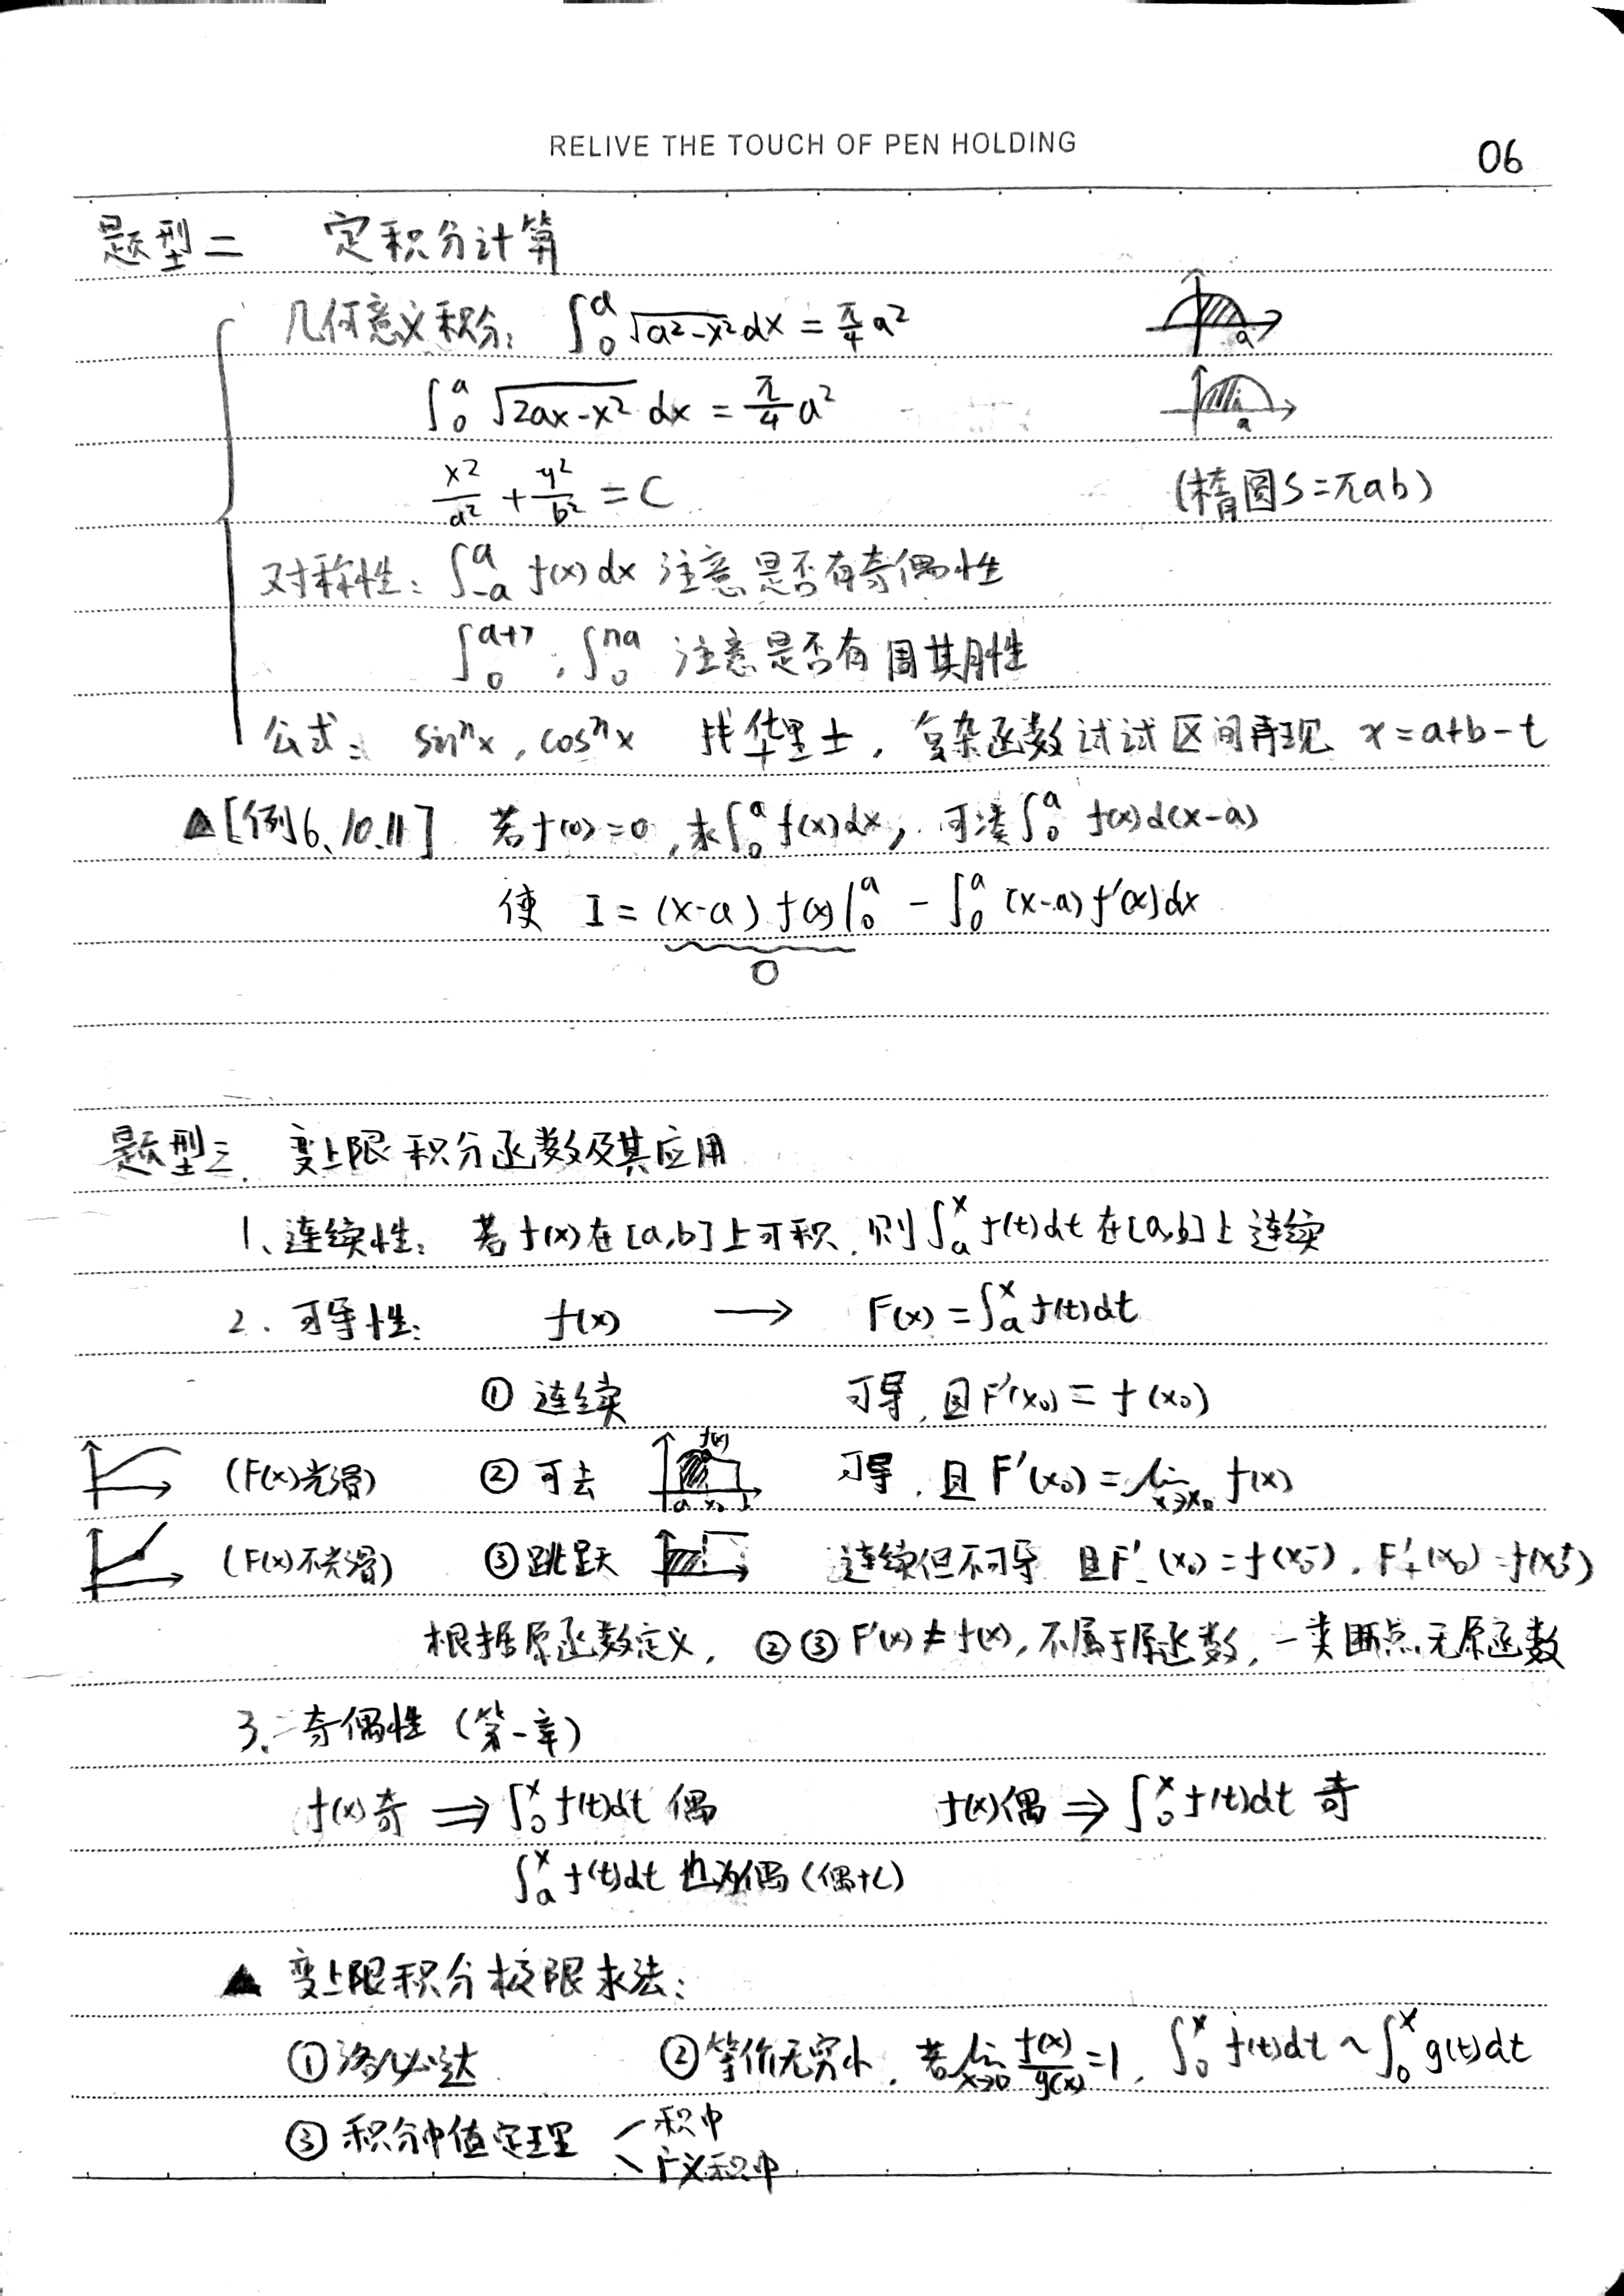 RELIVE THE TOUCH OF PEN HOLDING
06
题型二 定积分计算
几何意义积分: ∫₀ᵃ √(a²-x²) dx = π/4 a²
a
∫₀ᵃ √(2ax-x²) dx = π/4 a²
a
x²/a² + y²/b² = C (椭圆S=πab)
对称性: ∫₋ₐᵃ f(x)dx 注意是否有奇偶性
∫₀ᵃ⁺ᵀ, ∫₀ⁿᵃ 注意是否有周期性
公式: sinⁿx, cosⁿx 找华里士, 复杂函数试试区间再现 x=a+b-t
▲[例6、10、11] 若f(0)=0, 求∫₀ᵃ f(x)dx, 可凑∫₀ᵃ f(x)d(x-a)
使 I=(x-a)f(x)|₀ᵃ - ∫₀ᵃ (x-a)f'(x)dx
0
题型三. 变上限积分函数及其应用
1、连续性: 若f(x)在[a,b]上可积, 则∫ₐˣ f(t)dt在[a,b]上连续
2. 可导性: f(x) → F(x)=∫ₐˣ f(t)dt
① 连续 可导, 且F'(x₀)=f(x₀)
(F(x)光滑) ② 可去 f(x) a x₀ 可导, 且F'(x₀)=lim x→x₀ f(x)
(F(x)不光滑) ③ 跳跃 连续但不可导 且F'₋(x₀)=f(x₀⁻), F'₊(x₀)=f(x₀⁺)
根据原函数定义, ②③F'(x)≠f(x), 不属于原函数, 一类断点无原函数
3、奇偶性 (第一章)
f(x)奇 ⇒ ∫₀ˣ f(t)dt 偶 f(x)偶 ⇒ ∫₀ˣ f(t)dt 奇
∫ₐˣ f(t)dt 也为偶(偶+C)
▲ 变上限积分极限求法:
① 洛必达 ② 等价无穷小, 若lim x→0 f(x)/g(x)=1, ∫₀ˣ f(t)dt ~ ∫₀ˣ g(t)dt
③ 积分中值定理 积中
广义积中